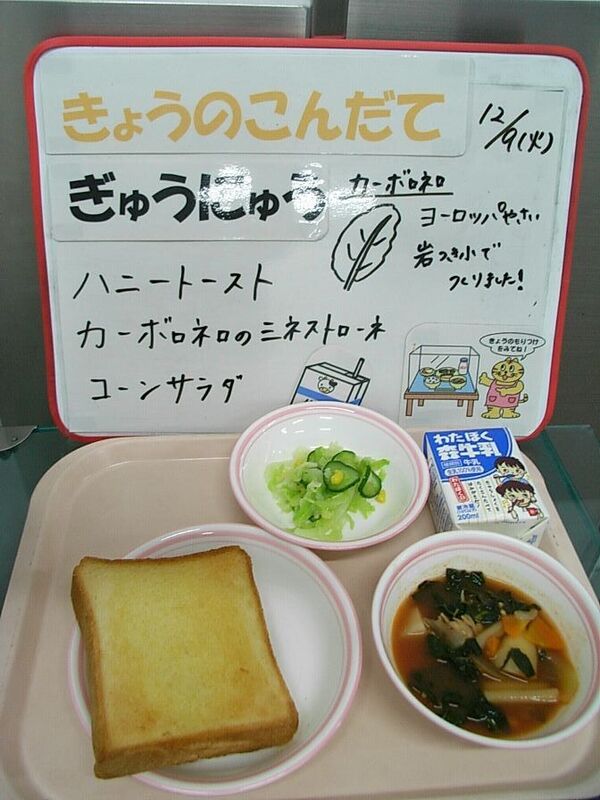 きょうのこんだて
12/9(火)
ぎゅうにゅう
カーボロネロ
ヨーロッパやさい
岩つき小で
つくりました!
ハニートースト
カーボロネロのミネストローネ
コーンサラダ
きょうのもりつけ
をみてね!
わたぼく
牛乳
牛乳
生乳100%使用
要冷蔵
200ml